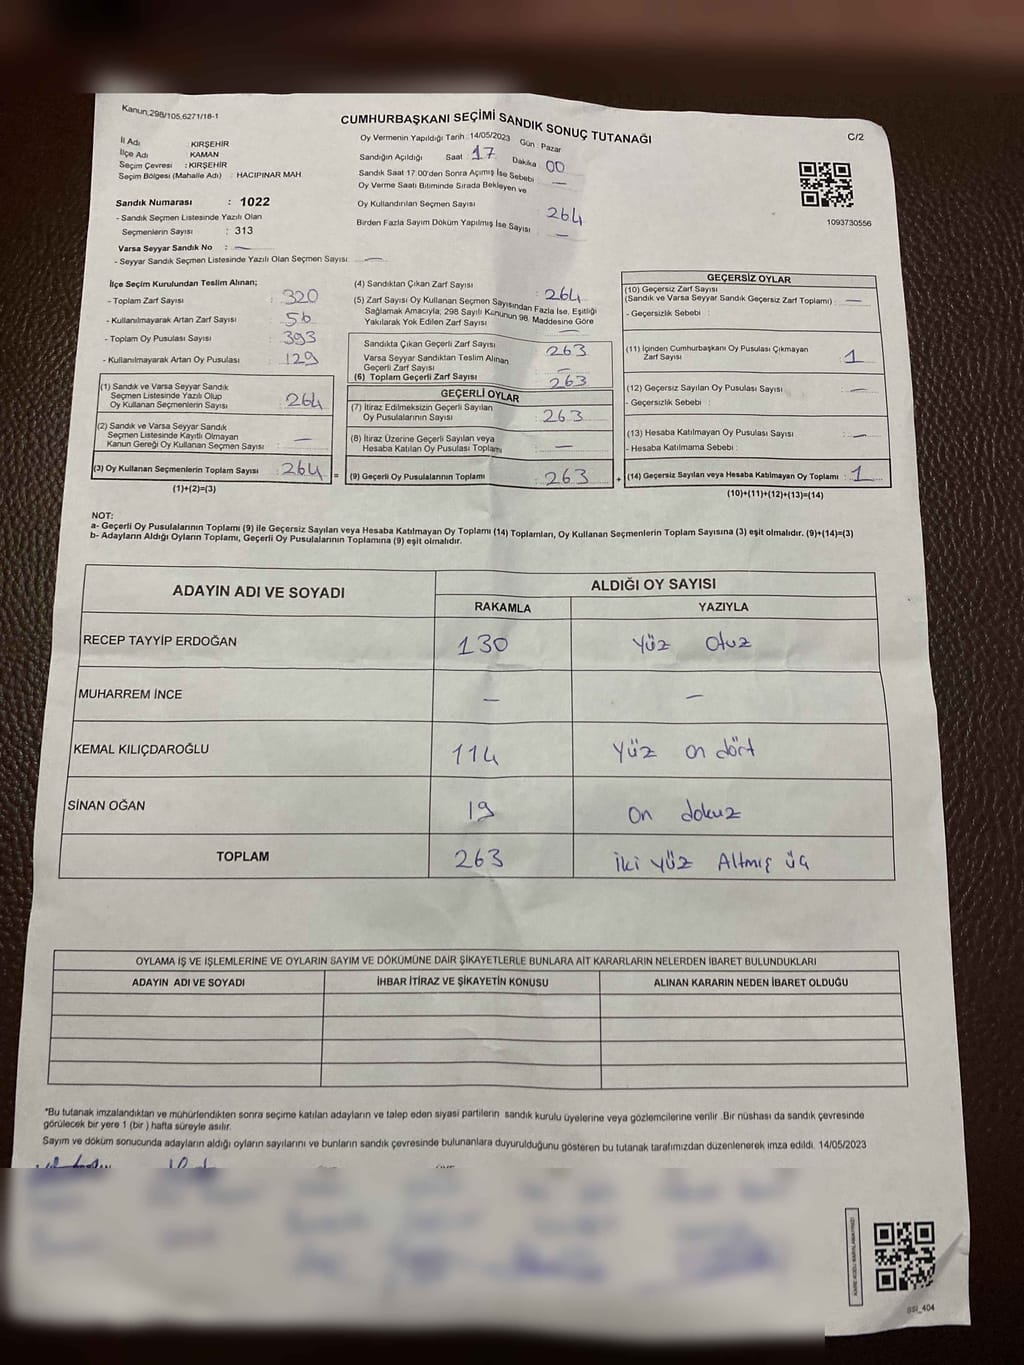 Kanun.298/105.6271/18-1
CUMHURBAŞKANI SEÇİMİ SANDIK SONUÇ TUTANAĞI
C/2
İl Adı KIRŞEHİR
İlçe Adı KAMAN
Seçim Çevresi : KIRŞEHİR
Seçim Bölgesi (Mahalle Adı) : HACIPINAR MAH.
Sandık Numarası : 1022
- Sandık Seçmen Listesinde Yazılı Olan
Seçmenlerin Sayısı : 313
Varsa Seyyar Sandık No : —
- Seyyar Sandık Seçmen Listesinde Yazılı Olan Seçmen Sayısı: —
Oy Vermenin Yapıldığı Tarih 14/05/2023 Gün : Pazar
Sandığın Açıldığı Saat 17 Dakika 00
Sandık Saat 17:00'den Sonra Açımış İse Sebebi —
Oy Verme Saati Bitiminde Sırada Bekleyen ve
Oy Kullandırılan Seçmen Sayısı 264
Birden Fazla Sayım Döküm Yapılmış İse Sayısı —
1093730556
İlçe Seçim Kurulundan Teslim Alınan;
- Toplam Zarf Sayısı 320
- Kullanılmayarak Artan Zarf Sayısı 56
- Toplam Oy Pusulası Sayısı 393
- Kullanılmayarak Artan Oy Pusulası 129
(1) Sandık ve Varsa Seyyar Sandık
Seçmen Listesinde Yazılı Olup
Oy Kullanan Seçmenlerin Sayısı : 264
(2) Sandık ve Varsa Seyyar Sandık
Seçmen Listesinde Kayıtlı Olmayan
Kanun Gereği Oy Kullanan Seçmen Sayısı : —
(3) Oy Kullanan Seçmenlerin Toplam Sayısı : 264 =
(1)+(2)=(3)
(4) Sandıktan Çıkan Zarf Sayısı : 264
(5) Zarf Sayısı Oy Kullanan Seçmen Sayısından Fazla İse, Eşitliği
Sağlamak Amacıyla; 298 Sayılı Kanunun 98. Maddesine Göre
Yakılarak Yok Edilen Zarf Sayısı —
Sandıkta Çıkan Geçerli Zarf Sayısı 263
Varsa Seyyar Sandıktan Teslim Alınan
Geçerli Zarf Sayısı : —
(6) Toplam Geçerli Zarf Sayısı 263
GEÇERLİ OYLAR
(7) İtiraz Edilmeksizin Geçerli Sayılan
Oy Pusulalarının Sayısı : 263
(8) İtiraz Üzerine Geçerli Sayılan veya
Hesaba Katılan Oy Pusulası Toplamı —
(9) Geçerli Oy Pusulalarının Toplamı : 263 +
GEÇERSİZ OYLAR
(10) Geçersiz Zarf Sayısı
(Sandık ve Varsa Seyyar Sandık Geçersiz Zarf Toplamı) : —
- Geçersizlik Sebebi :
(11) İçinden Cumhurbaşkanı Oy Pusulası Çıkmayan
Zarf Sayısı : 1
(12) Geçersiz Sayılan Oy Pusulası Sayısı : —
- Geçersizlik Sebebi :
(13) Hesaba Katılmayan Oy Pusulası Sayısı : —
- Hesaba Katılmama Sebebi :
(14) Geçersiz Sayılan veya Hesaba Katılmayan Oy Toplamı : 1
(10)+(11)+(12)+(13)=(14)
NOT:
a- Geçerli Oy Pusulalarının Toplamı (9) ile Geçersiz Sayılan veya Hesaba Katılmayan Oy Toplamı (14) Toplamları, Oy Kullanan Seçmenlerin Toplam Sayısına (3) eşit olmalıdır. (9)+(14)=(3)
b- Adayların Aldığı Oyların Toplamı, Geçerli Oy Pusulalarının Toplamına (9) eşit olmalıdır.
ADAYIN ADI VE SOYADI ALDIĞI OY SAYISI
RAKAMLA YAZIYLA
RECEP TAYYİP ERDOĞAN 130 Yüz Otuz
MUHARREM İNCE — —
KEMAL KILIÇDAROĞLU 114 Yüz on dört
SİNAN OĞAN 19 on dokuz
TOPLAM 263 iki yüz Altmış üç
OYLAMA İŞ VE İŞLEMLERİNE VE OYLARIN SAYIM VE DÖKÜMÜNE DAİR ŞİKAYETLERLE BUNLARA AİT KARARLARIN NELERDEN İBARET BULUNDUKLARI
ADAYIN ADI VE SOYADI İHBAR İTİRAZ VE ŞİKAYETİN KONUSU ALINAN KARARIN NEDEN İBARET OLDUĞU
*Bu tutanak imzalandıktan ve mühürlendikten sonra seçime katılan adayların ve talep eden siyasi partilerin sandık kurulu üyelerine veya gözlemcilerine verilir .Bir nüshası da sandık çevresinde
görülecek bir yere 1 (bir ) hafta süreyle asılır.
Sayım ve döküm sonucunda adayların aldığı oyların sayılarını ve bunların sandık çevresinde bulunanlara duyurulduğunu gösteren bu tutanak tarafımızdan düzenlenerek imza edildi. 14/05/2023
SSI_404